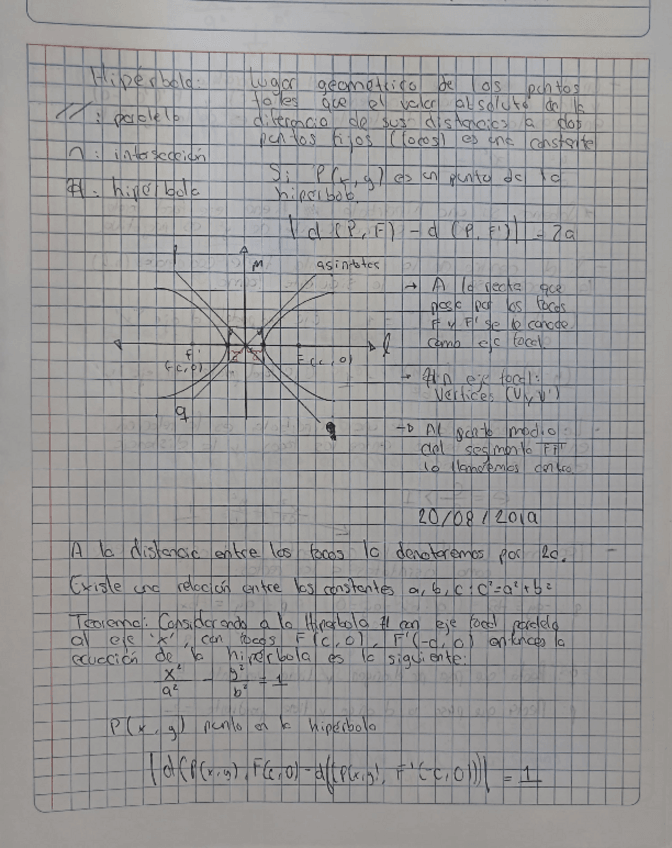 Hipérbola: Lugar geométrico de los pntos
tales que el valor absoluto de la
//: paralelo diferencia de sus distancias a dos
pentos fijos (focos) es una constante
∩: intersección
Si P(x,y) es un punto de la
H: hipérbola hipérbola
|d(P,F)-d(P,F')|=2a
M asíntotas
→ A la recta que
pasa por los focos
F y F' se le conoce
como eje focal.
l
F' F(c,0)
(-c,0)
→ H ∩ eje focal:
Vértices (V y V')
q
→ Al punto medio
del segmento FF'
lo llamaremos centro
20/08/2019
A la distancia entre los focos la denotaremos por 2c.
Existe una relación entre las constantes a, b, c: c²=a²+b²
Teorema: Considerando a la Hiperbola H con eje focal paralelo
al eje 'x', con focos F(c,0), F'(-c,0) entonces la
ecuación de la hipérbola es la siguiente:
x²/a² - y²/b² = 1
P(x,y) punto en la hipérbola
|d(P(x,y), F(c,0)-d((P(x,y), F'(-c,0))| = 1